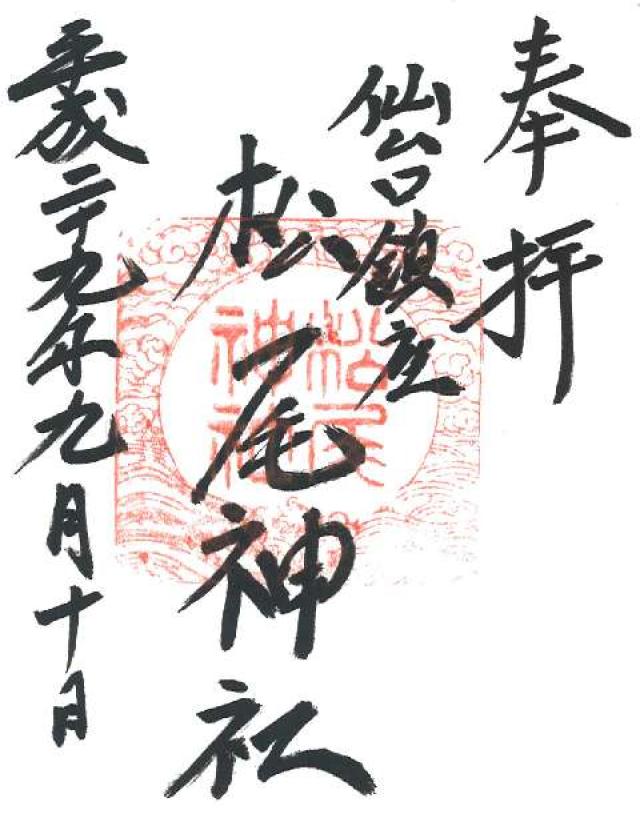 奉拝
仙台鎮座
松尾神社
松尾神社
平成二十九年九月十日